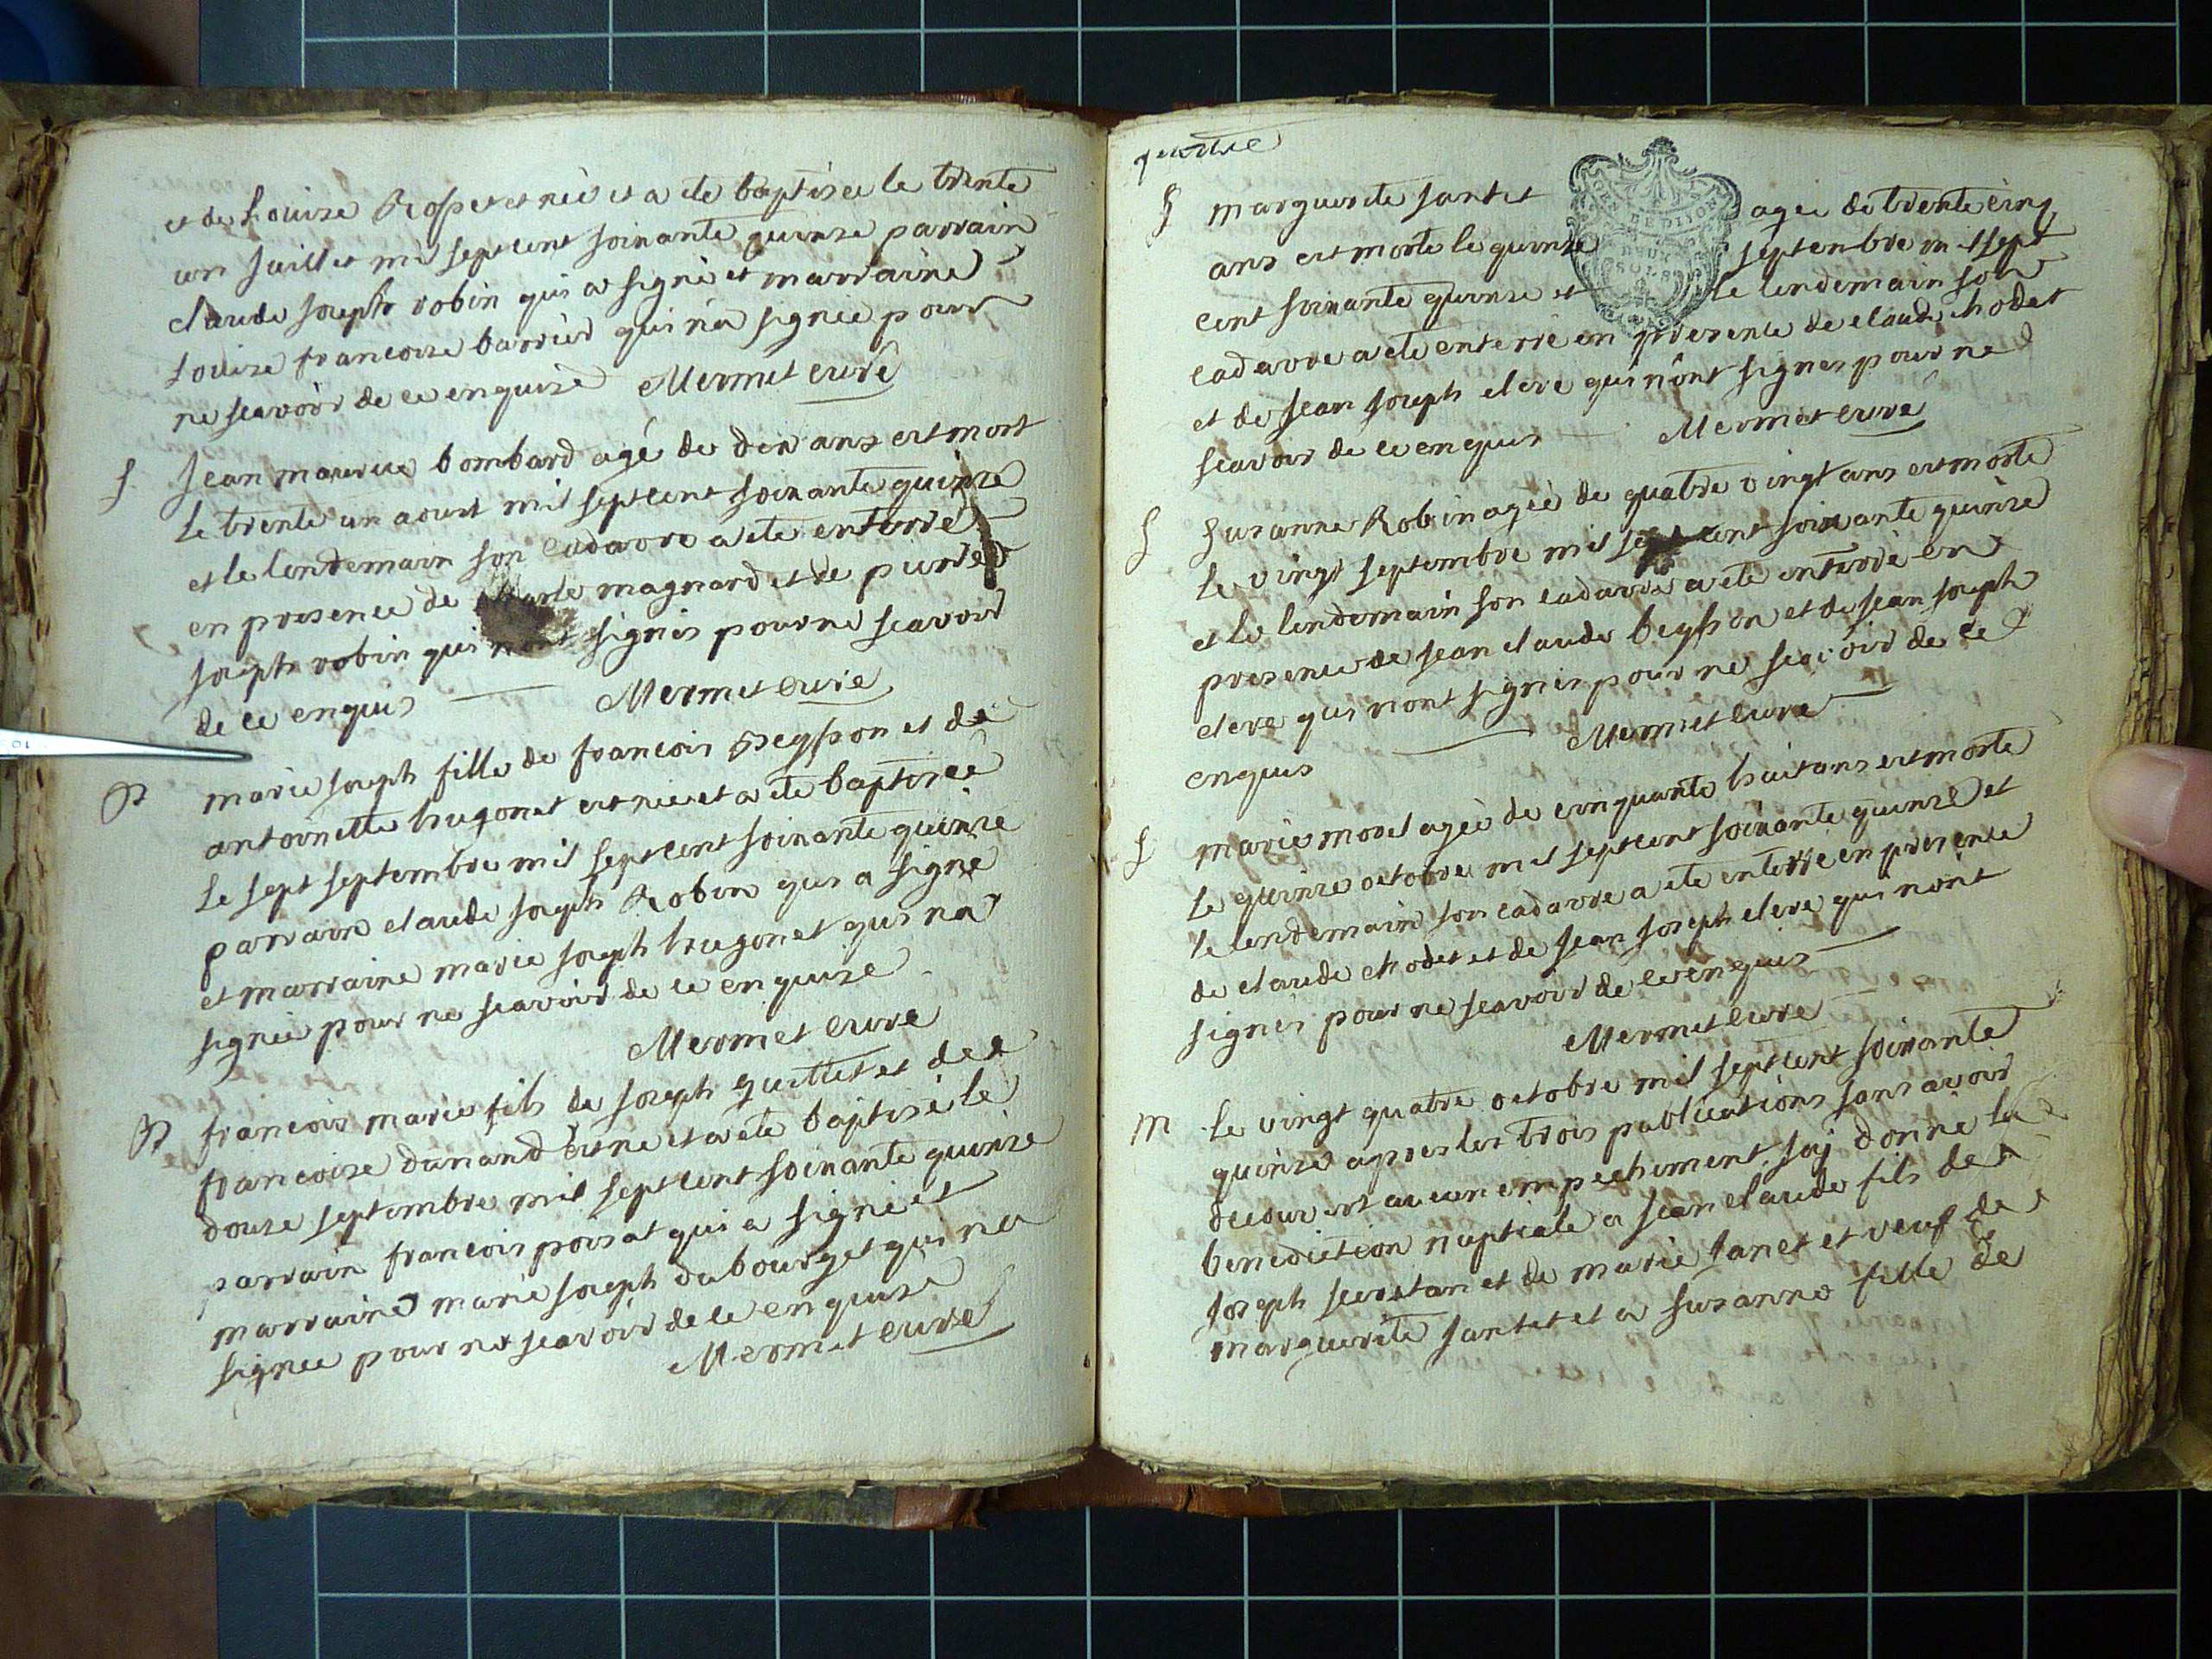 et de Louise Rosset est neè et a ete baptiseé le trente
un juillet mil sept cent soixante quinze parrain
claude joseph robin qui a signé et marraine
Louise francoise barrier qui n'a signeé pour
ne scavoir de ce enquise Mermet curé
S jean maurice bombard agé de dix ans est mort
le trente un aoust mil sept cent soixante quinze
et le lendemain son cadavre a ete enterré
en presence de magnard et de pierre
joseph robin qui nont signés pour ne scavoir
de ce enquis Mermet curé
B marie joseph fille de francois Beysson et de
antoinette hugonet est neè et a ete baptiseé
le sept septembre mil sept cent soixante quinze
parrain claude joseph Robin qui a signé
et marraine marie joseph hugonet qui na
signeé pour ne scavoir de ce enquise
Mermet cure
B francois marie fils de joseph quittet et de
francoise dunand est ne et a ete baptisé le
douze septembre mil sept cent soixante quinze
parrain francois poisat qui a signé et
marraine marie joseph dubourget qui na
signeé pour ne scavoir de ce enquise
Mermet cure
quatre
S marguerite jantet ageé de trente cinq
GEN DE DIJON
DEUX
SOLS
ans est morte le quinze septembre mil sept
cent soixante quinze et le lendemain son
cadavre a ete enterré en presence de claude chodet
et de jean joseph clerc qui n'ont signés pour ne
scavoir de ce enquis Mermet cure
S Suzanne Robin ageè de quatre vingt ans est morte
le vingt septembre mil sept cent soixante quinze
et le lendemain son cadavre a ete enterré en
presence de jean claude beysson et de jean joseph
clerc qui nont signés pour ne scavoir de ce
enquis Mermet cure
S marie morel ageè de cinquante huit ans est morte
le quinze octobre mil sept cent soixante quinze et
le lendemain son cadavre a ete enterré en presence
de claude chodet et de jean joseph clerc qui nont
signés pour ne scavoir de ce enquis
Mermet cure
M Le vingt quatre octobre mil sept cent soixante
quinze apres les trois publications sans avoir
decouvert aucun empechement jaj donné la
benediction nuptiale a jean claude fils de
joseph secretan et de marie janet et veuf de
marguerite jantet et a suzanne fille de